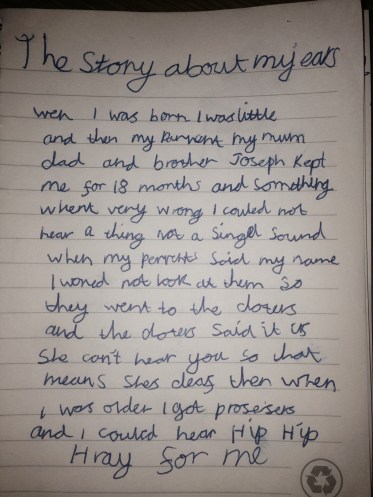 The Story about my ears
wen I was born I was little
and then my Parvent my mum
dad and brother Joseph Kept
me for 18 months and something
whent very wrong I could not
hear a thing not a singel sound
when my perrents said my name
I woned not look at them so
they went to the docters
and the docters said it is
She can't hear you so that
means shes deaf then when
I was older I got prosesers
and I could hear Hip Hip
Hray for me